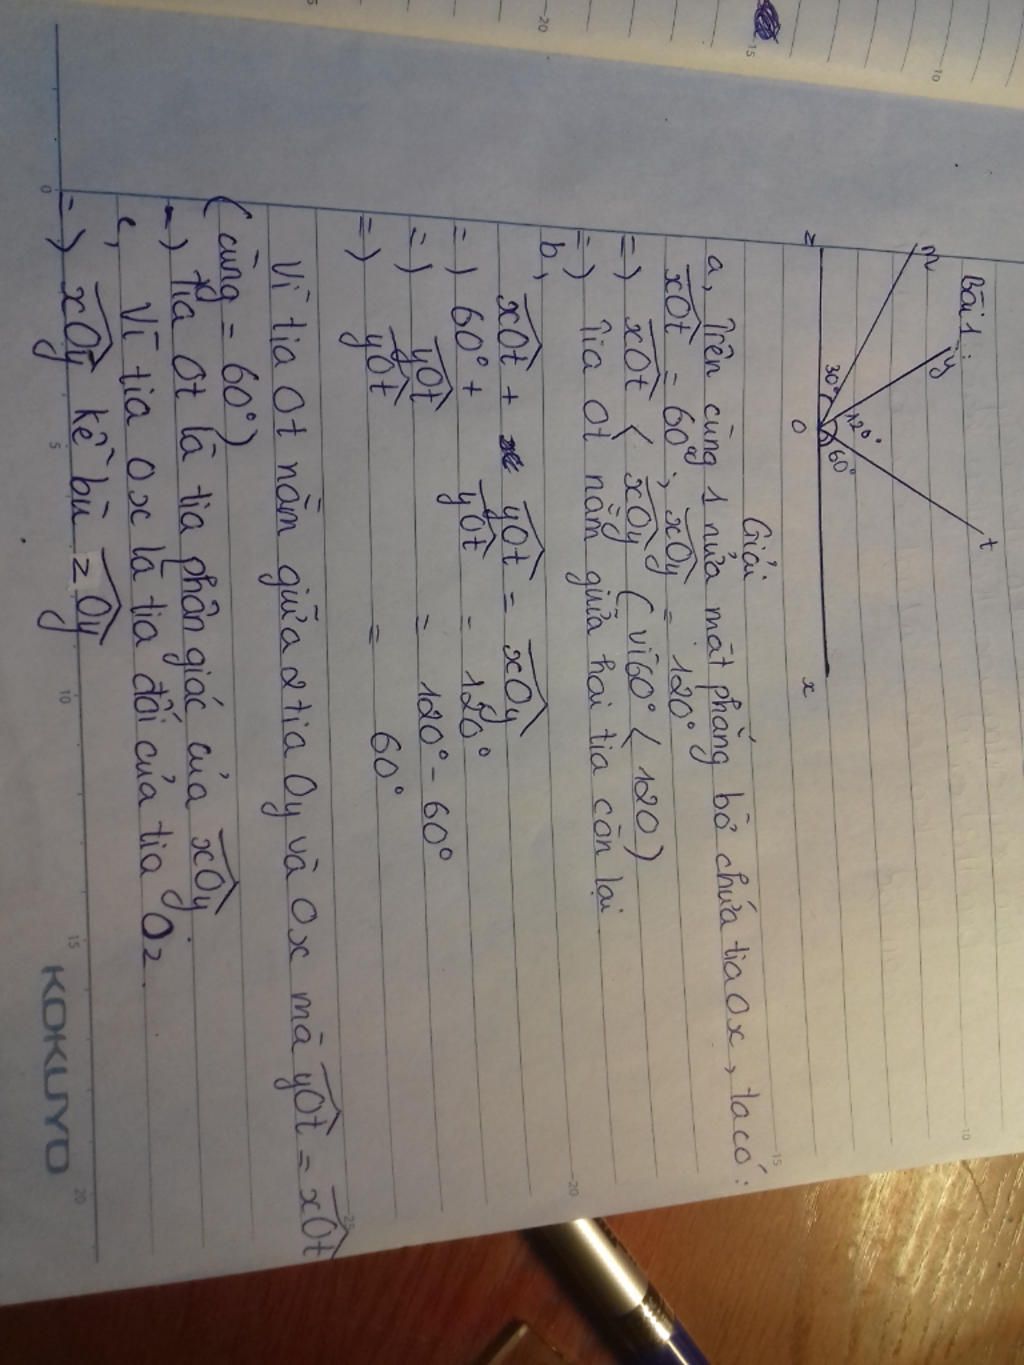 Bài 1:
m
y
t
30°
120°
60°
z
O
x
Giải
a, Trên cùng 1 nửa mặt phẳng bờ chứa tia Ox, ta có:
xOt = 60°; xOy = 120°
=) xOt < xOy (vì 60° < 120)
=) Tia Ot nằm giữa hai tia còn lại
b,
xOt + yOt = xOy
=) 60° + yOt = 120°
=) yOt = 120° - 60°
=) yOt = 60°
Vì tia Ot nằm giữa 2 tia Oy và Ox mà yOt = xOt
(cùng = 60°)
=) tia Ot là tia phân giác của xOy
c, Vì tia Ox là tia đối của tia Oz
=) xOy kề bù zOy
KOKUYO
0
5
10
15
20
10
15
20
25
20
15
10